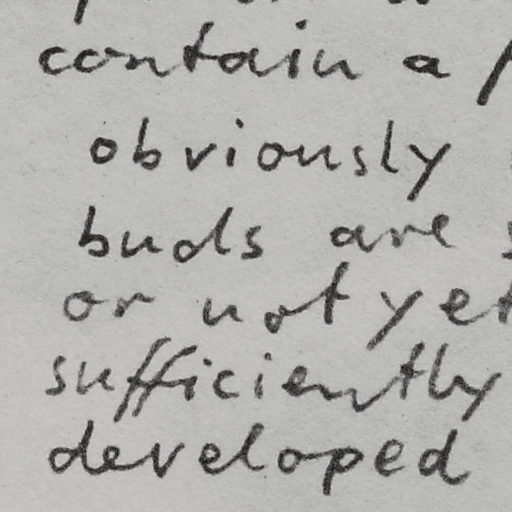 contain a
obviously
buds are
or not yet
sufficiently
developed